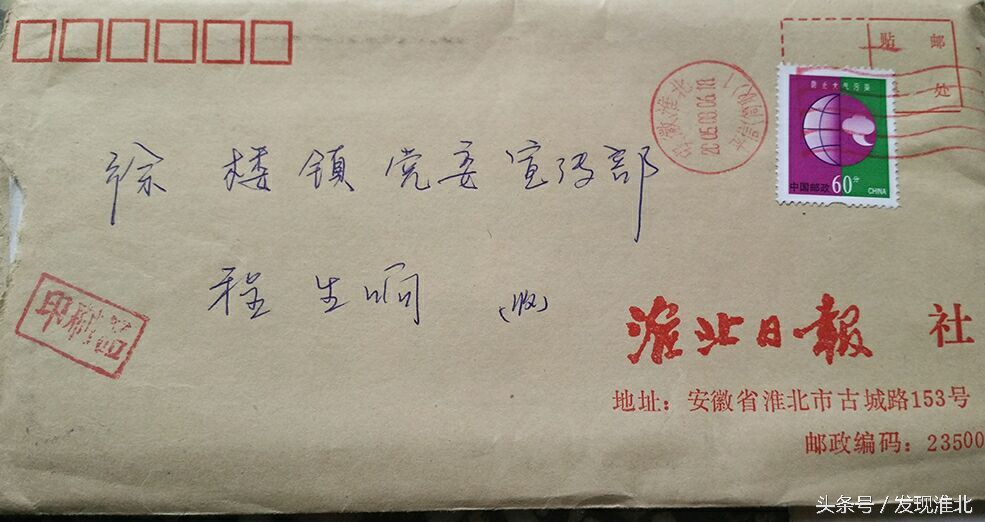 贴 邮
处
防止大气污染
中国邮政 60分 CHINA
徐 楼 镇 党委宣传部
程 生 (收)
印刷品
淮北日报 社
地址：安徽省淮北市古城路153号
邮政编码：23500
头条号 / 发现淮北